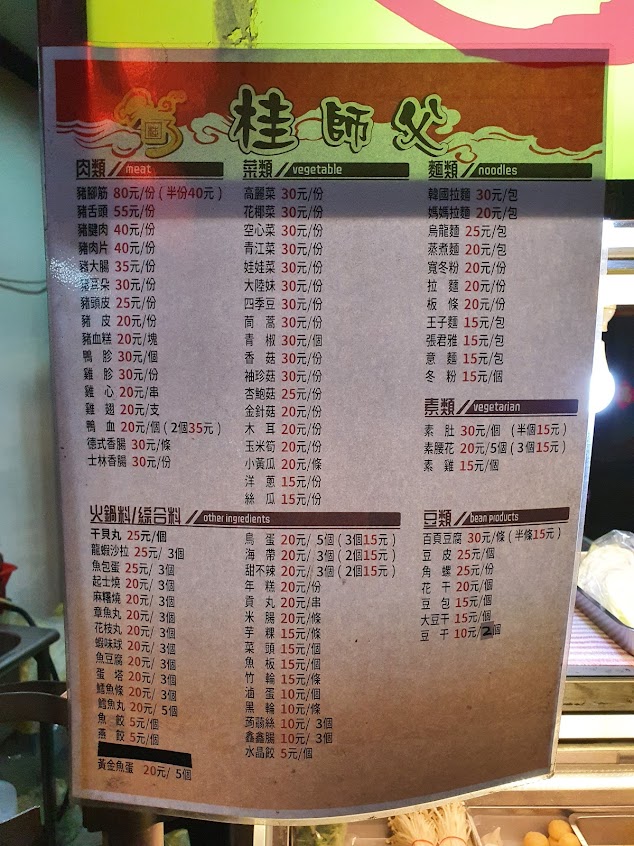 桂師父
肉類 meat
豬腳筋 80元/份 ( 半份40元 )
豬舌頭 55元/份
豬腱肉 40元/份
豬肉片 40元/份
豬大腸 35元/份
豬耳朵 30元/份
豬頭皮 25元/份
豬皮 20元/份
豬血糕 20元/塊
鴨胗 30元/個
雞胗 30元/份
雞心 20元/串
雞翅 20元/支
鴨血 20元/個 ( 2個35元 )
德式香腸 30元/條
士林香腸 30元/份
菜類 vegetable
高麗菜 30元/份
花椰菜 30元/份
空心菜 30元/份
青江菜 30元/份
娃娃菜 30元/份
大陸妹 30元/份
四季豆 30元/份
茼蒿 30元/份
青椒 30元/個
香菇 30元/份
袖珍菇 30元/份
杏鮑菇 25元/份
金針菇 20元/份
木耳 20元/份
玉米筍 20元/份
小黃瓜 20元/條
洋蔥 15元/份
絲瓜 15元/份
麵類 noodles
韓國拉麵 30元/包
媽媽拉麵 20元/包
烏龍麵 25元/包
蒸煮麵 20元/包
寬冬粉 20元/份
拉麵 20元/份
板條 20元/份
王子麵 15元/包
張君雅 15元/包
意麵 15元/包
冬粉 15元/個
素類 vegetarian
素肚 30元/個 ( 半個15元 )
素腰花 20元/5個 ( 3個15元 )
素雞 15元/個
火鍋料/綜合料 other ingredients
干貝丸 25元/個
龍蝦沙拉 25元/ 3個
魚包蛋 25元/ 3個
起士燒 20元/ 3個
麻糬燒 20元/ 3個
章魚丸 20元/ 3個
花枝丸 20元/ 3個
蝦味球 20元/ 3個
魚豆腐 20元/ 3個
蛋塔 20元/ 3個
鱈魚條 20元/ 3個
鱈魚丸 20元/ 5個
魚餃 5元/個
燕餃 5元/個
黃金魚蛋 20元/ 5個
鳥蛋 20元/ 5個 ( 3個15元 )
海帶 20元/ 3個 ( 2個15元 )
甜不辣 20元/ 3個 ( 2個15元 )
年糕 20元/份
貢丸 20元/串
米腸 20元/條
芋粿 15元/條
菜頭 15元/個
魚板 15元/個
竹輪 15元/條
滷蛋 10元/個
黑輪 10元/條
蒟蒻絲 10元/ 3個
鑫鑫腸 10元/ 3個
水晶餃 5元/個
豆類 bean products
百頁豆腐 30元/條 ( 半條15元 )
豆皮 25元/個
角螺 25元/份
花干 20元/個
豆包 15元/個
大豆干 15元/個
豆干 10元/2個